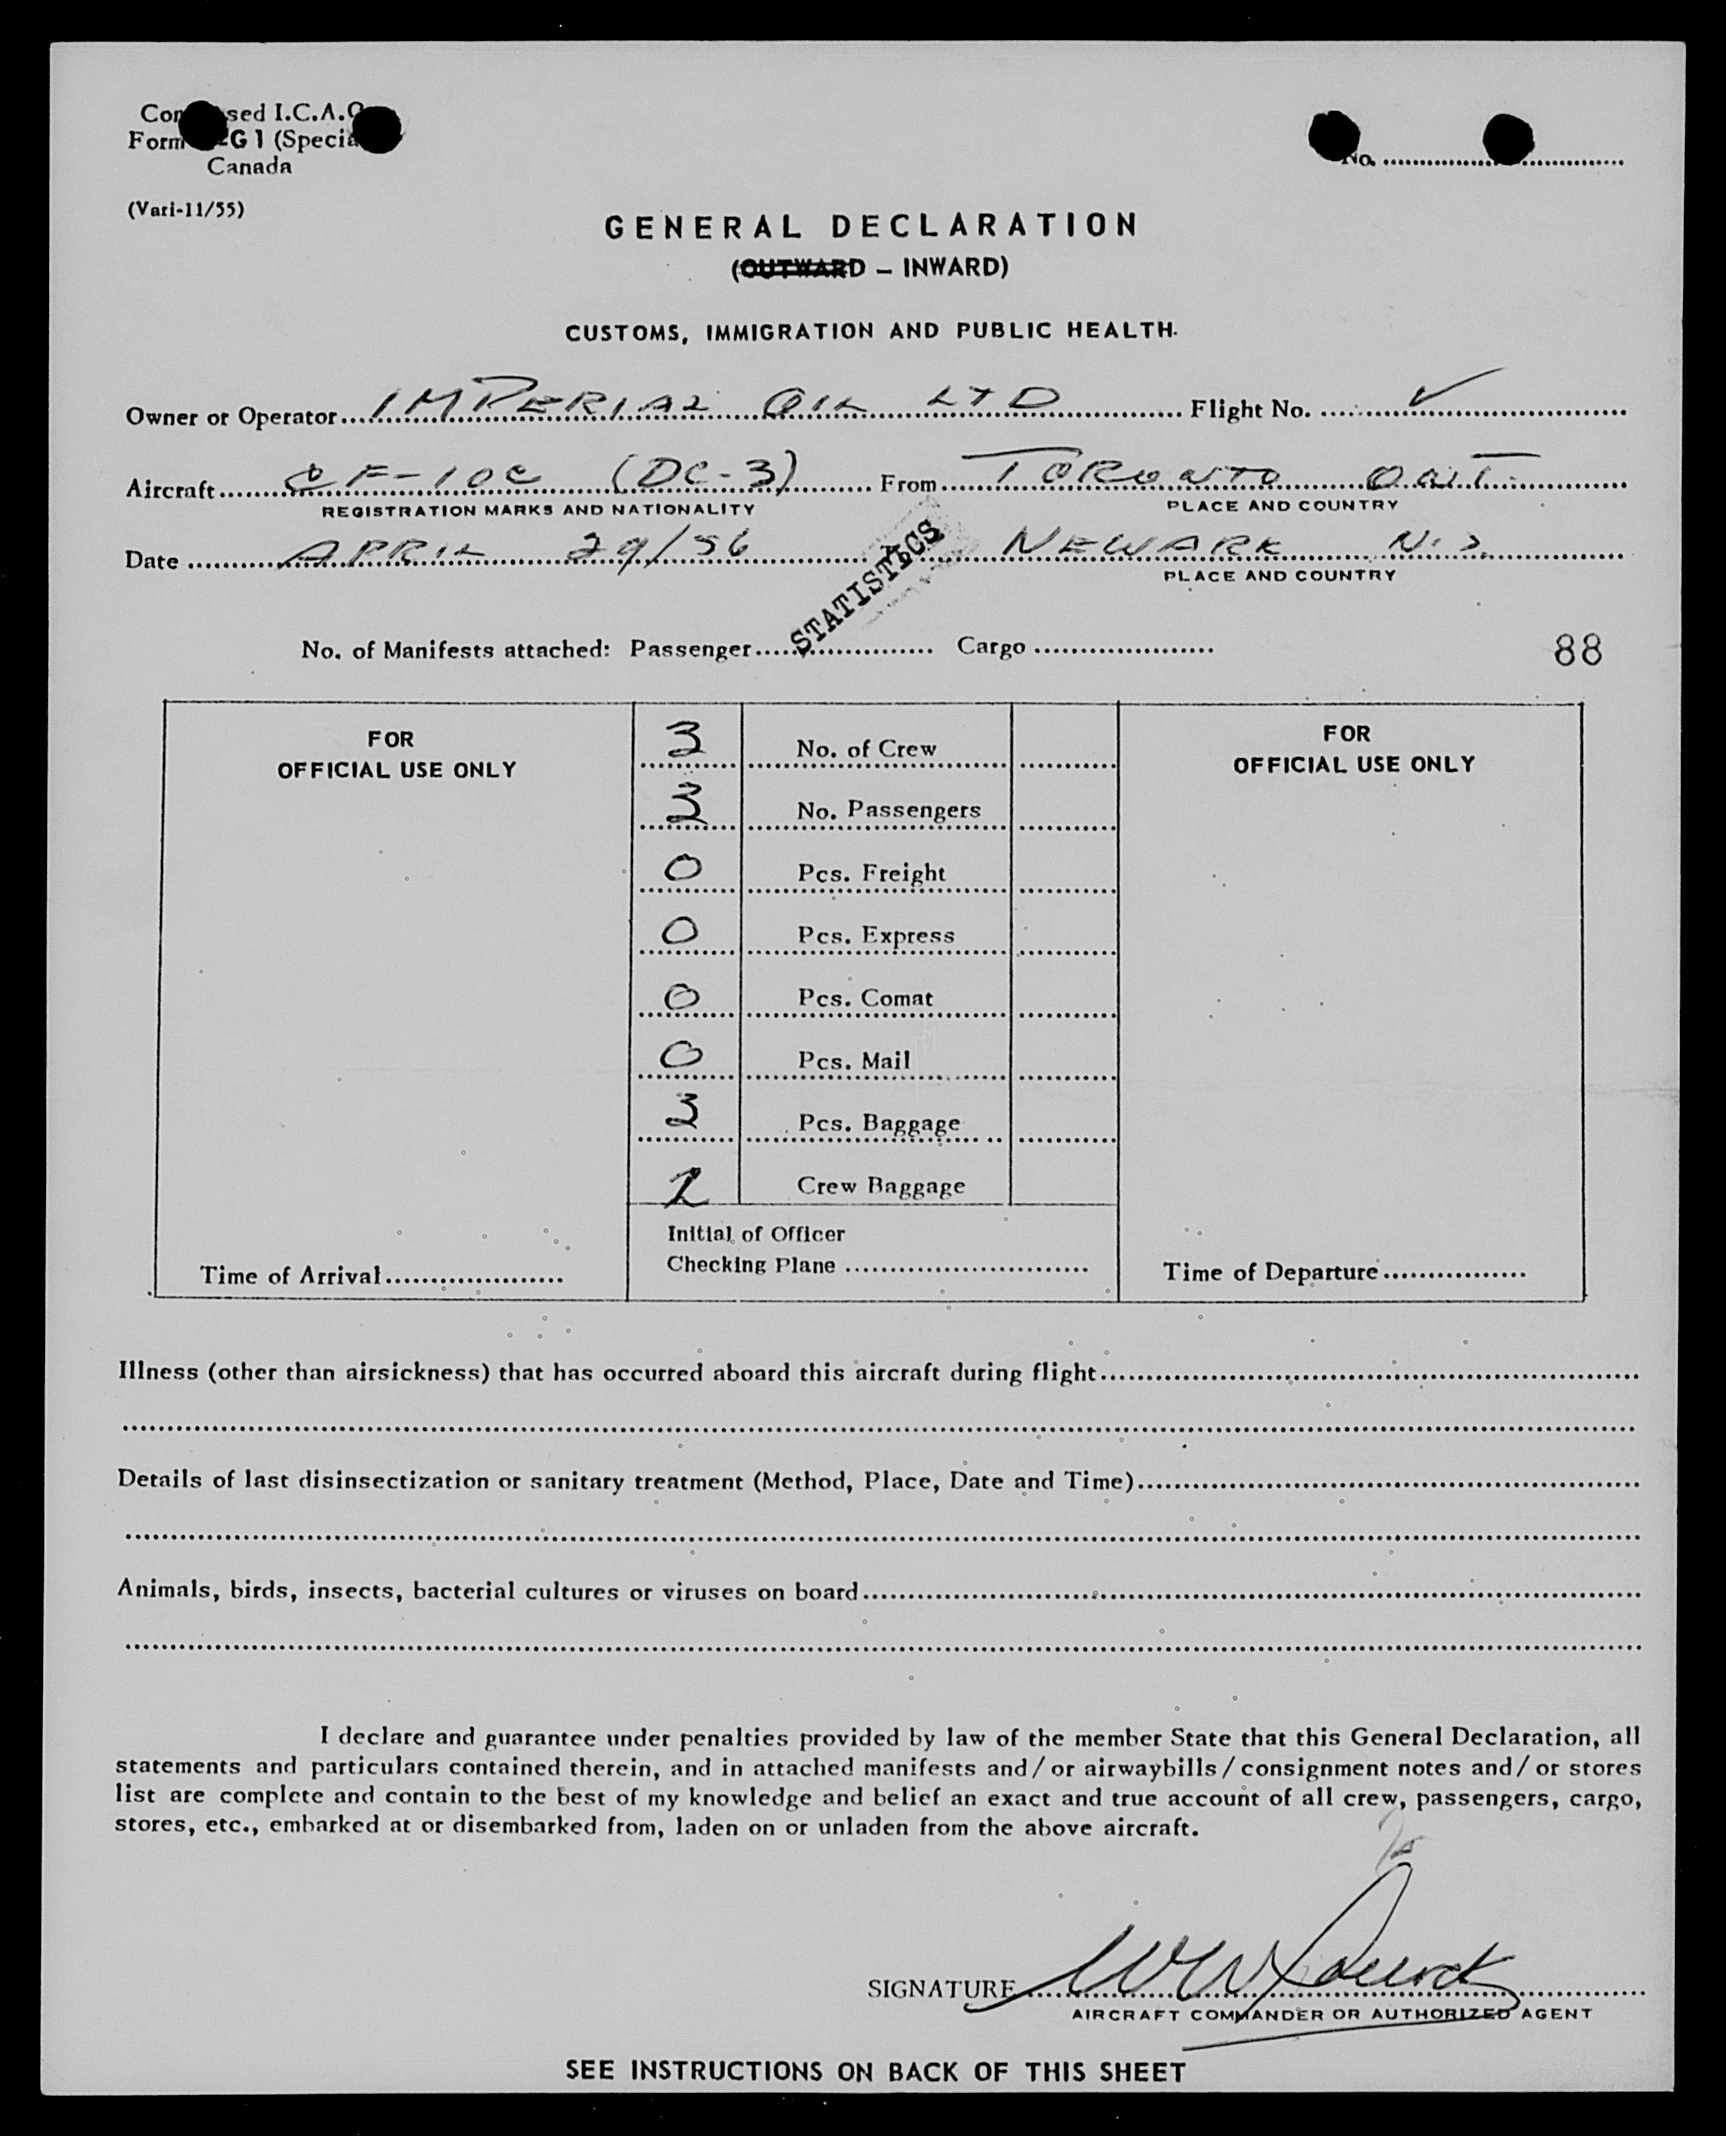 Con sed I.C.A.O
Form G 1 (Specia
Canada
No.
(Vari-11/55)
GENERAL DECLARATION
(OUTWARD – INWARD)
CUSTOMS, IMMIGRATION AND PUBLIC HEALTH.
Owner or Operator IMPERIAL OIL LTD Flight No. ✓
Aircraft CF-IOC (DC-3) From TORONTO ONT.
REGISTRATION MARKS AND NATIONALITY PLACE AND COUNTRY
Date APRIL 29/56 NEWARK N.J.
PLACE AND COUNTRY
STATISTICS
No. of Manifests attached: Passenger Cargo
88
FOR
OFFICIAL USE ONLY
3 No. of Crew
3 No. Passengers
0 Pcs. Freight
0 Pcs. Express
0 Pcs. Comat
0 Pcs. Mail
3 Pcs. Baggage
2 Crew Baggage
Initial of Officer
Checking Plane
Time of Arrival
FOR
OFFICIAL USE ONLY
Time of Departure
Illness (other than airsickness) that has occurred aboard this aircraft during flight
Details of last disinsectization or sanitary treatment (Method, Place, Date and Time)
Animals, birds, insects, bacterial cultures or viruses on board
I declare and guarantee under penalties provided by law of the member State that this General Declaration, all
statements and particulars contained therein, and in attached manifests and/or airwaybills/consignment notes and/or stores
list are complete and contain to the best of my knowledge and belief an exact and true account of all crew, passengers, cargo,
stores, etc., embarked at or disembarked from, laden on or unladen from the above aircraft.
SIGNATURE
AIRCRAFT COMMANDER OR AUTHORIZED AGENT
SEE INSTRUCTIONS ON BACK OF THIS SHEET